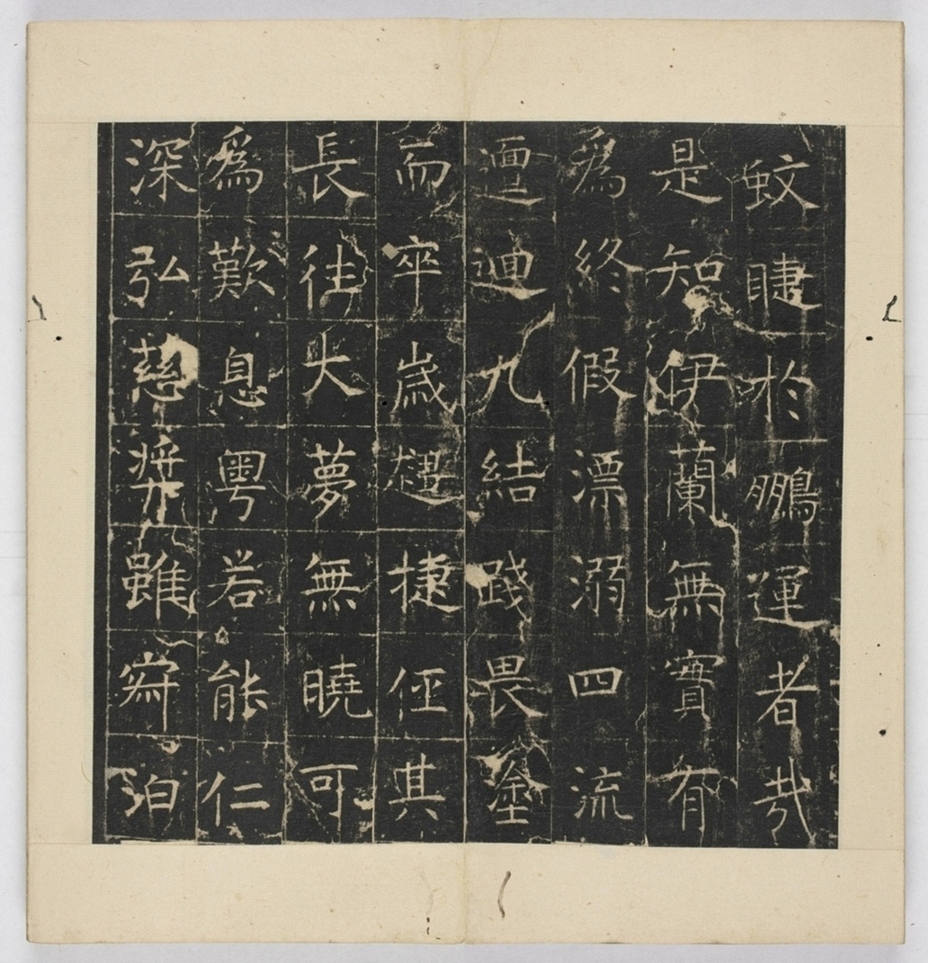 蚊睫於鵬運者哉
是知伊蘭無實有
爲終假漂溺四流
邅迴九結踐畏塗
而卒歲趨捷俓其
長往大夢無曉可
爲歎息粤若能仁
深弘慈奬雖寂泊